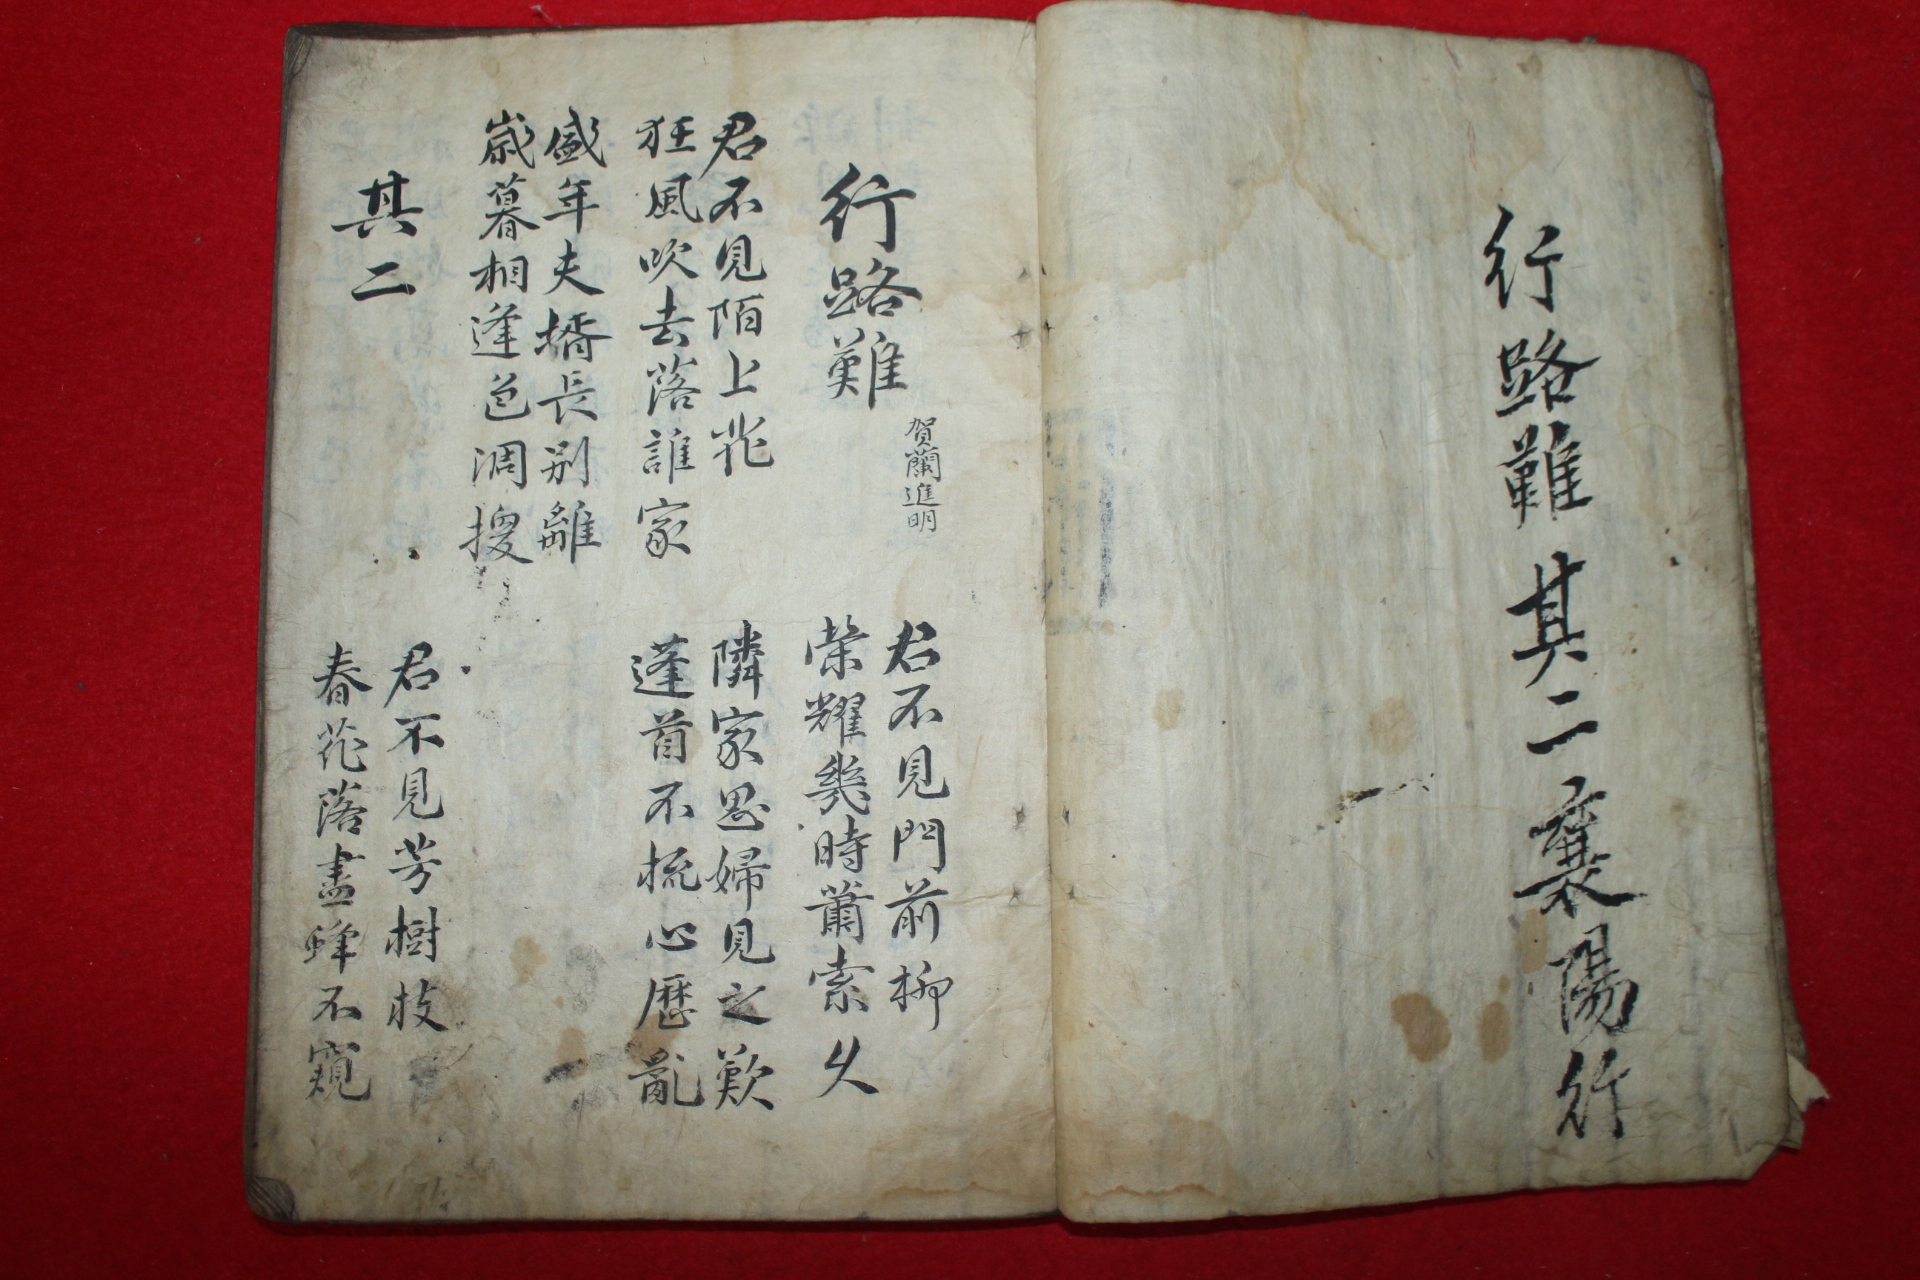 行路難 其二 襄陽行
行路難
賀蘭進明
君不見門前柳
榮耀幾時蕭索久
君不見陌上花
隣家思婦見之歎
狂風吹去落誰家
蓬首不梳心歷亂
盛年夫壻長別離
歲暮相逢色凋換
其二
君不見芳樹枝
春花落盡蜂不窺